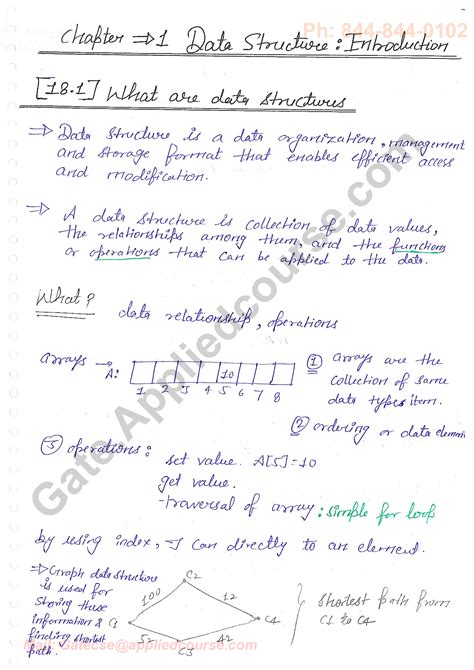 Ph: 844-844-0102
Chapter ⇒ 1 Data Structure : Introduction
[18.1] What are data structures
⇒ Data structure is a data organization, management
and storage format that enables efficient access
and modification.
⇒ A data structure is collection of data values,
the relationships among them, and the functions
or operations that can be applied to the data.
What?
data relationship, operations
arrays → A: 10
1 2 3 4 5 6 7 8
① arrays are the
collection of same
data types item.
② ordering or data elemen
③ operations:
set value. A[5]=10
get value.
traversal of array : simple for loop
by using index, I can directly to an element.
⇒ Graph data structure
is used for
storing these
information &
finding shortest
path.
C2
100 12
C1 C4
52 42
C3
shortest path from
C1 to C4
Gate.Appliedcourse.com
Mail: Gatecse@appliedcourse.com